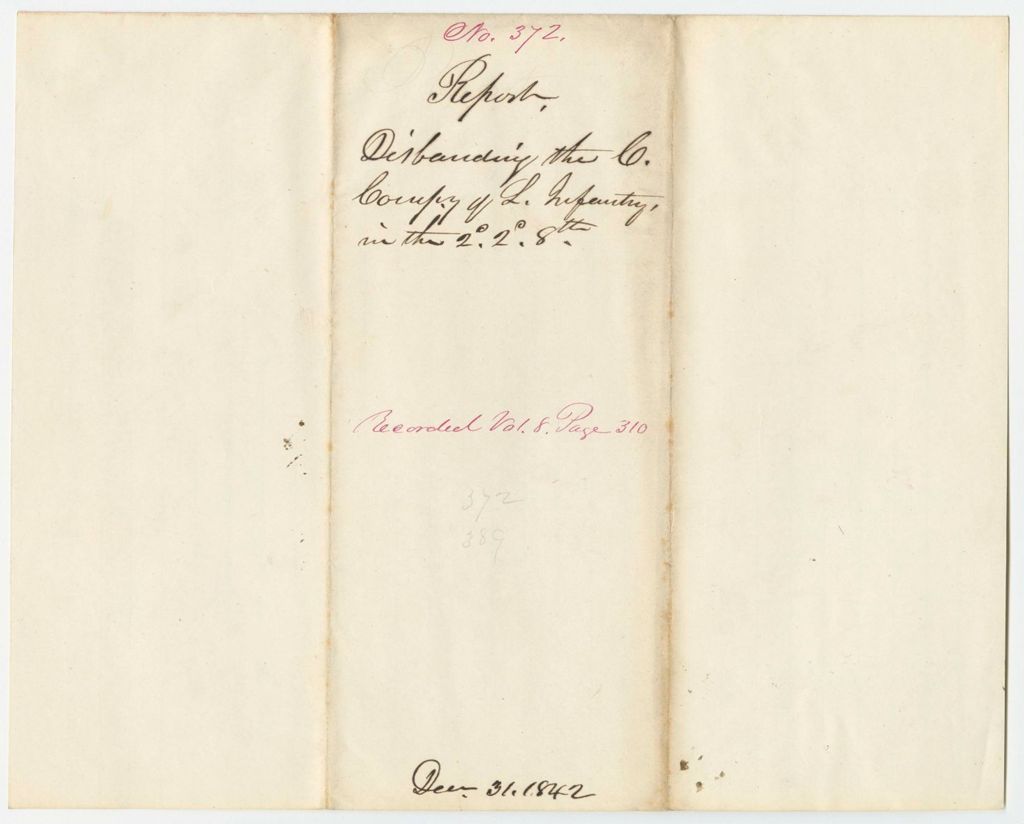 No. 372.
Report,
Disbanding the C.
Compy of L. Infantry,
in the 2d. 2d. 8th.
Recorded Vol. 8. Page 310
372
389
Decr. 31. 1842